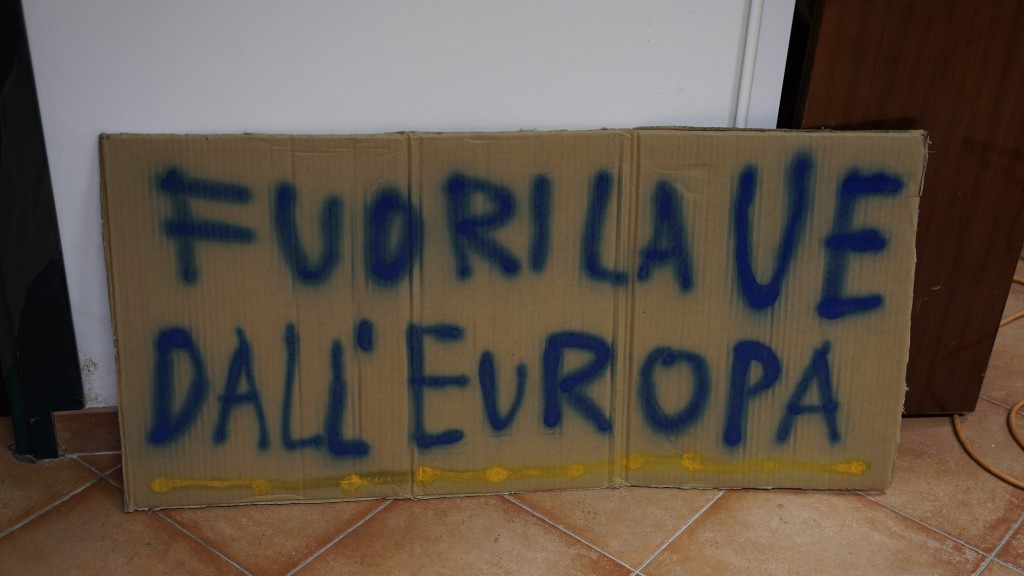 FUORI LA UE
DALL'EUROPA